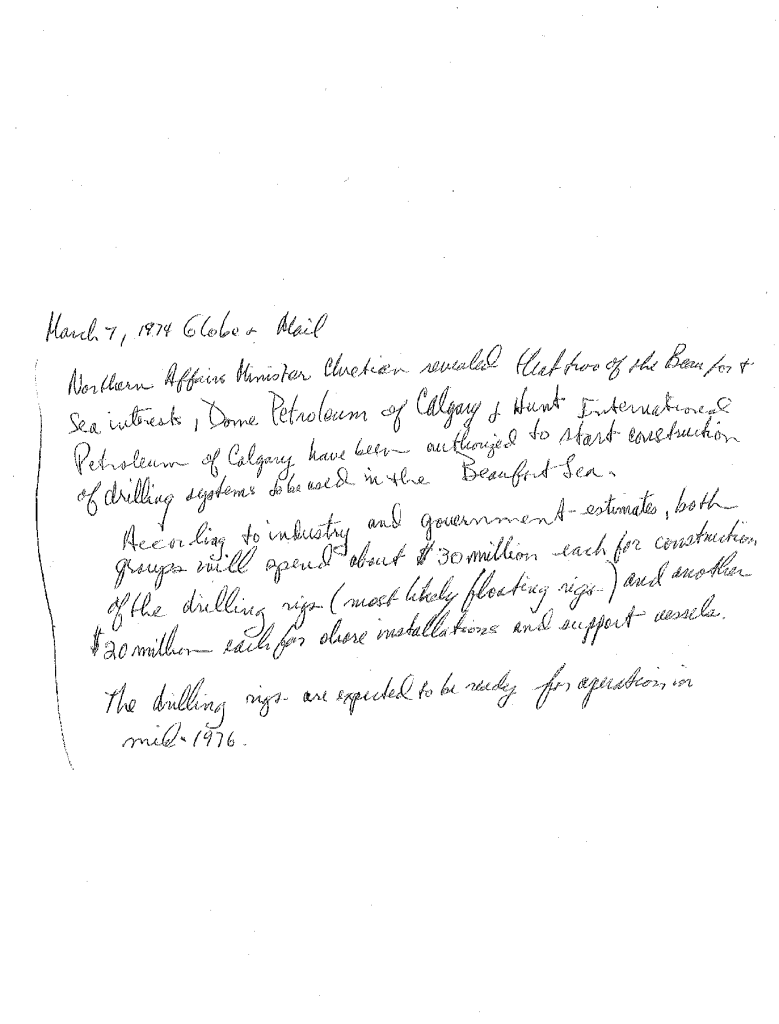 March 7, 1974 Globe & Mail
Northern Affairs Minister Chretien revealed that two of the Beaufort
Sea interests, Dome Petroleum of Calgary & Hunt International
Petroleum of Calgary have been authorized to start construction
of drilling systems to be used in the Beaufort Sea.
According to industry and government estimates, both
groups will spend about $30 million each for construction
of the drilling rigs (most likely floating rigs) and another
$20 million each for shore installations and support vessels.
The drilling rigs are expected to be ready for operation in
mid-1976.